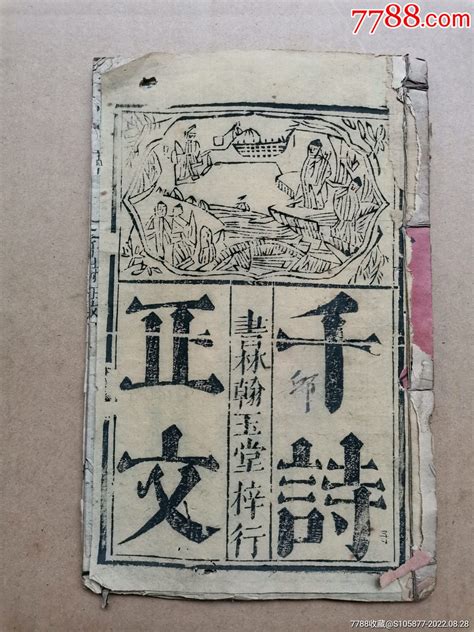 7788.com
千詩
書林翰玉堂梓行
正文
7788收藏@S105877-2022.08.28